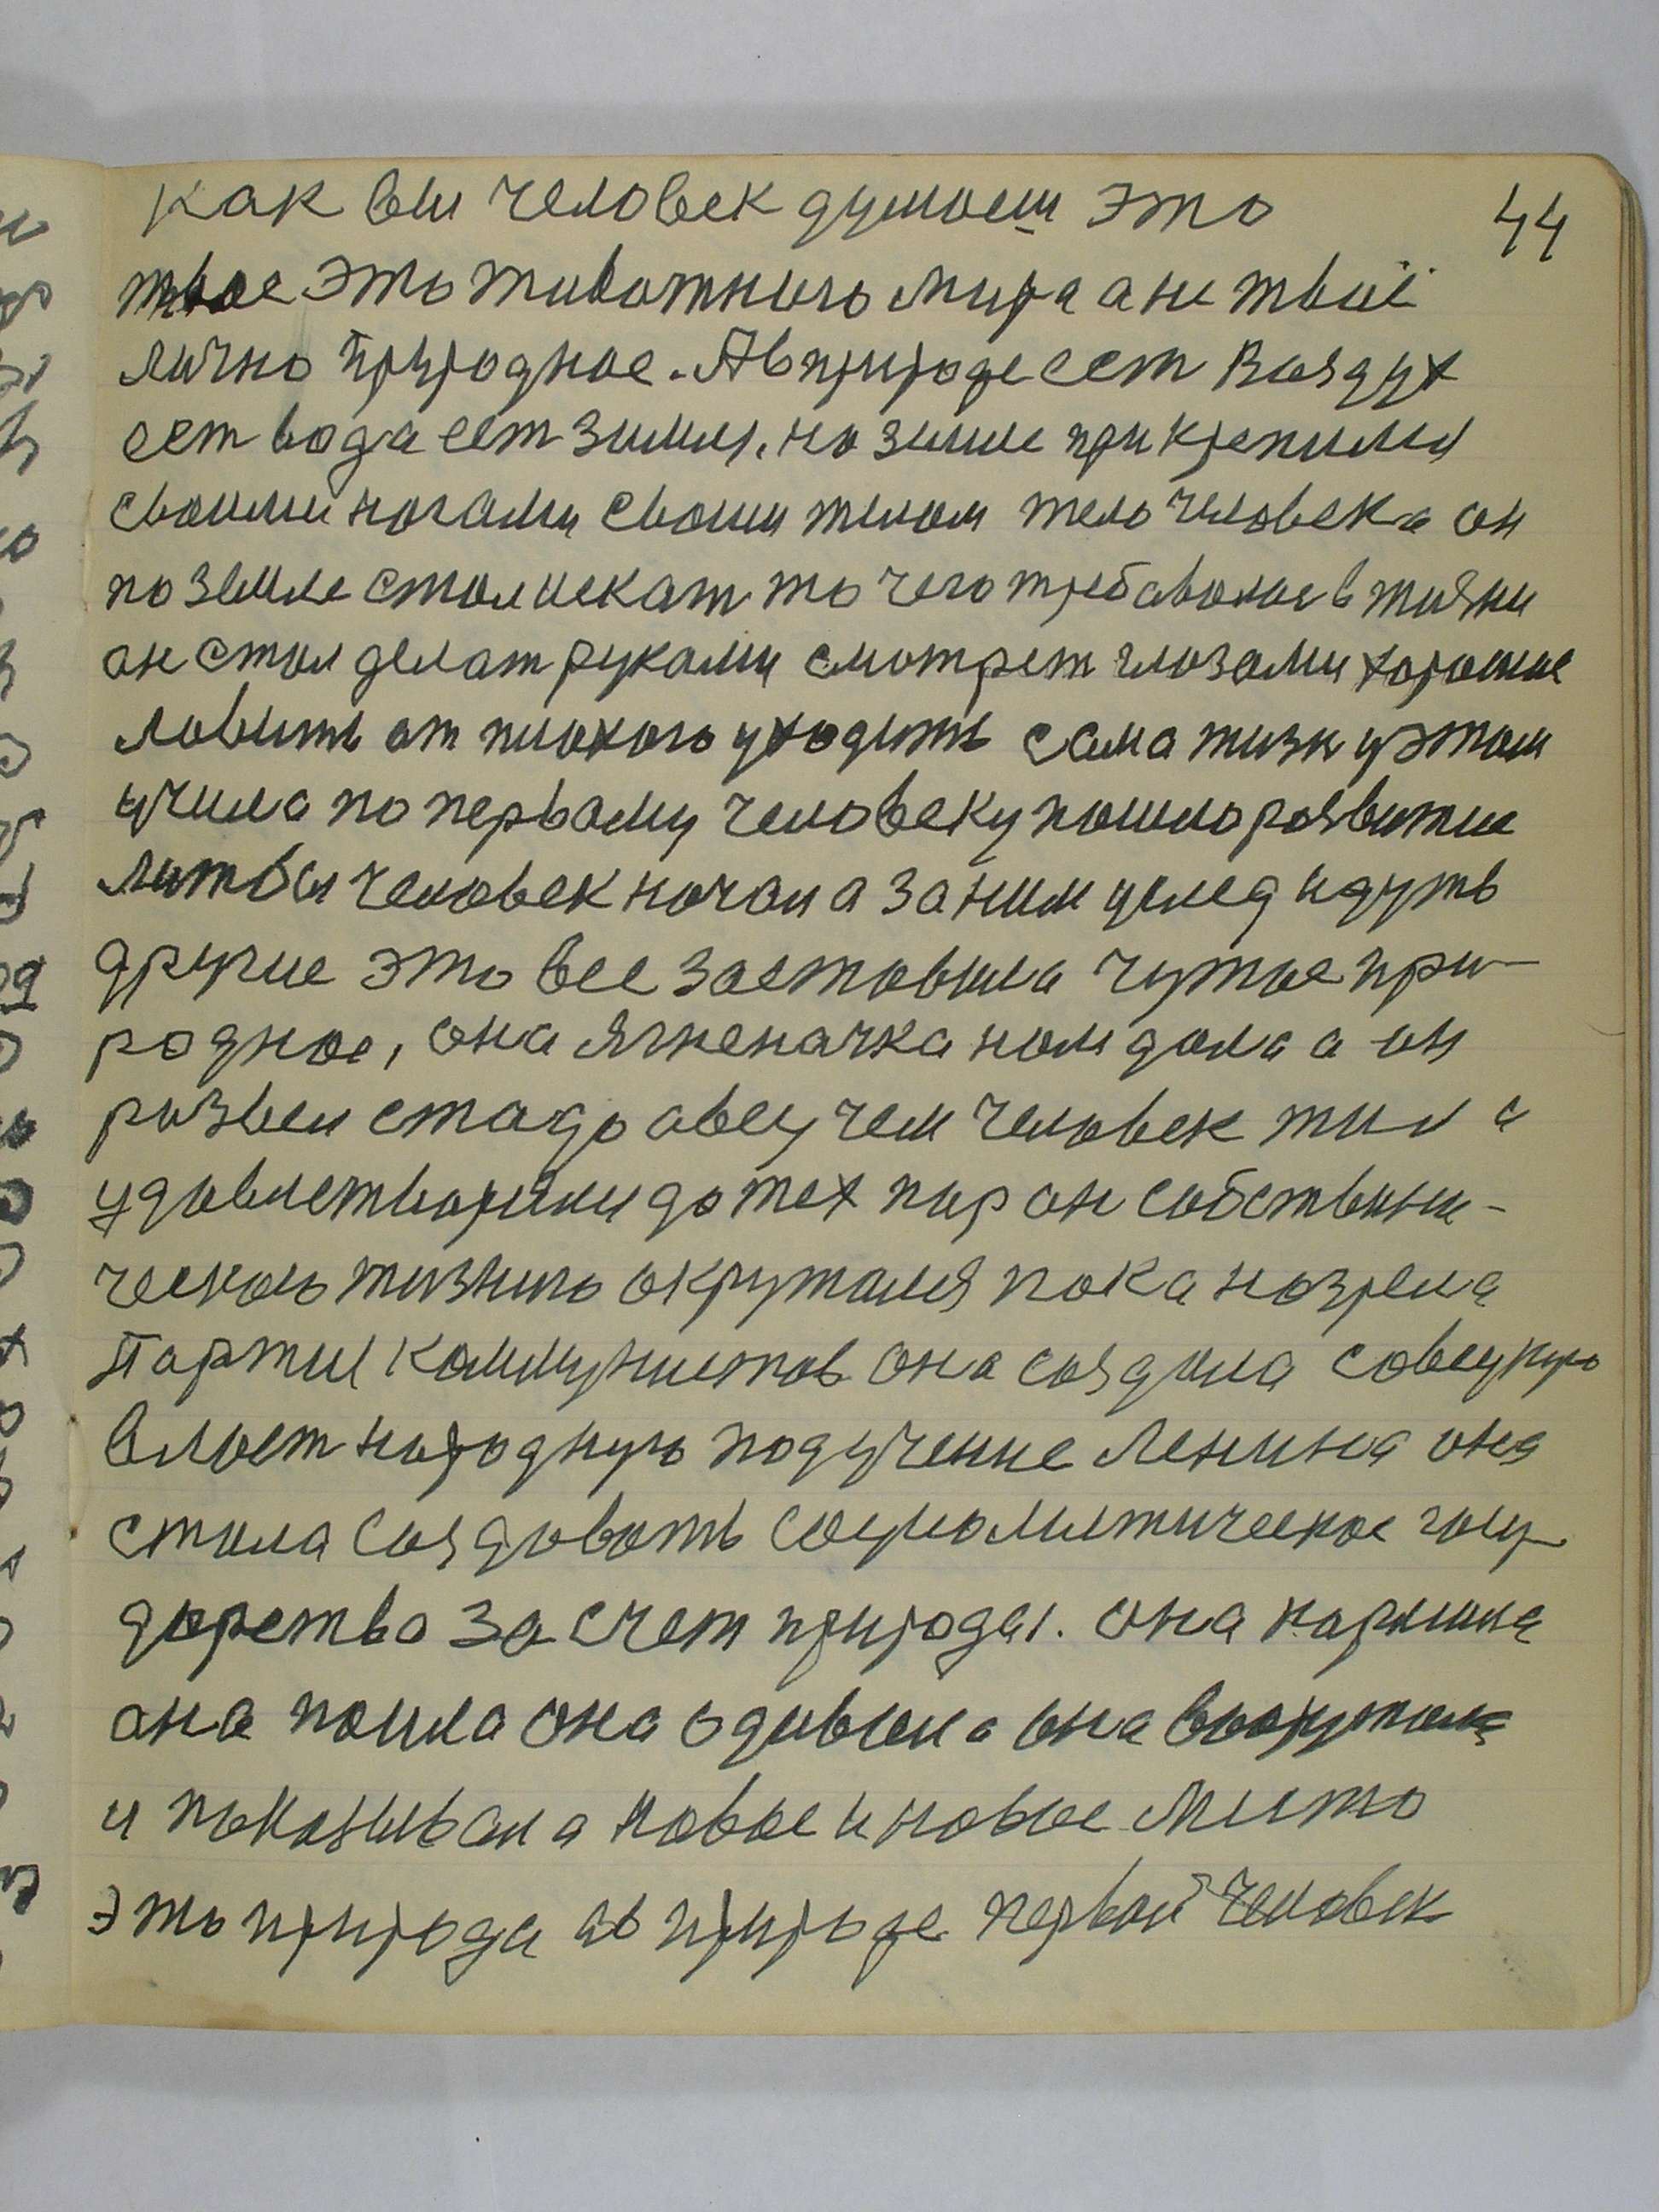 44
как вы человек думаеш это
твое это животного мира а не твое
лично природное. А в природе ест воздух
ест вода ест земля. на земле прикрепился
своими ногами своим телом тело человека он
по земле стал искат то чего требовалос в жизни
он стал делат руками смотрет глазами хорошие
ловить от плохого уходить сама жизн у этом
учила по первому человеку пошло развитие
жит был человек начал а за ним услед идуть
другие это все заставила чутое при-
родное, она ягненачка нам дала а он
развел стадо авец чем человек жил и
удавлетворялся до тех пор он собствени-
ческою жизнию окружался пока назрела
Партия коммунистов она создала совецкую
власт народную под учение Ленина она
стала создавать социалистическое госу
дарство за счет природы. она кармила
она поила она одивала она выхужала
и показивала новое и новое место
это природа а в природе первый человек